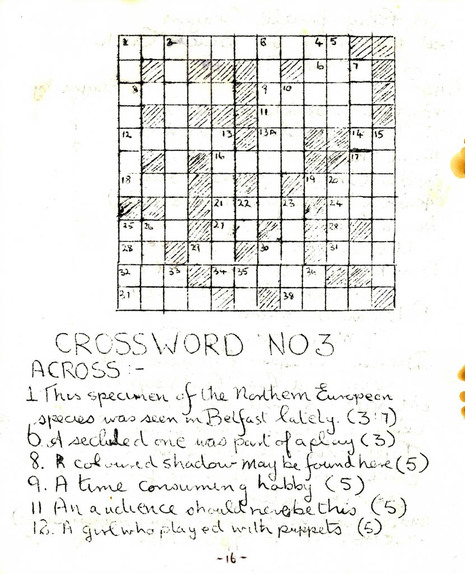 1 2 3 4 5
6 7
8 9 10
11
12 13 13A 14 15
16 17
18 19 20
21 22 23 24
25 26 27 28
28 29 30 31
32 33 34 35 36
37 38
CROSSWORD NO 3
ACROSS :-
1 This specimen of the Northern European
species was seen in Belfast lately. (3:7)
6 A secluded one was part of a play (3)
8. A coloured shadow may be found here (5)
9. A time consuming hobby (5)
11 An audience should never be this (5)
12. A girl who played with puppets (5)
-16-